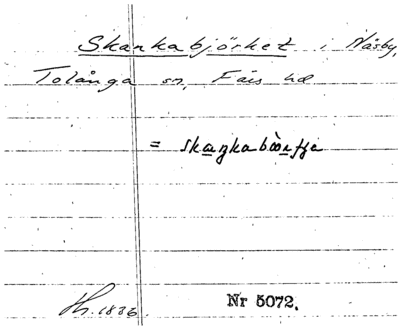 Skankabjörket i Näsby,
Tolånga sn, Färs hd
= skaŋkabö̀rtje
Th. 1836 Nr 5072.